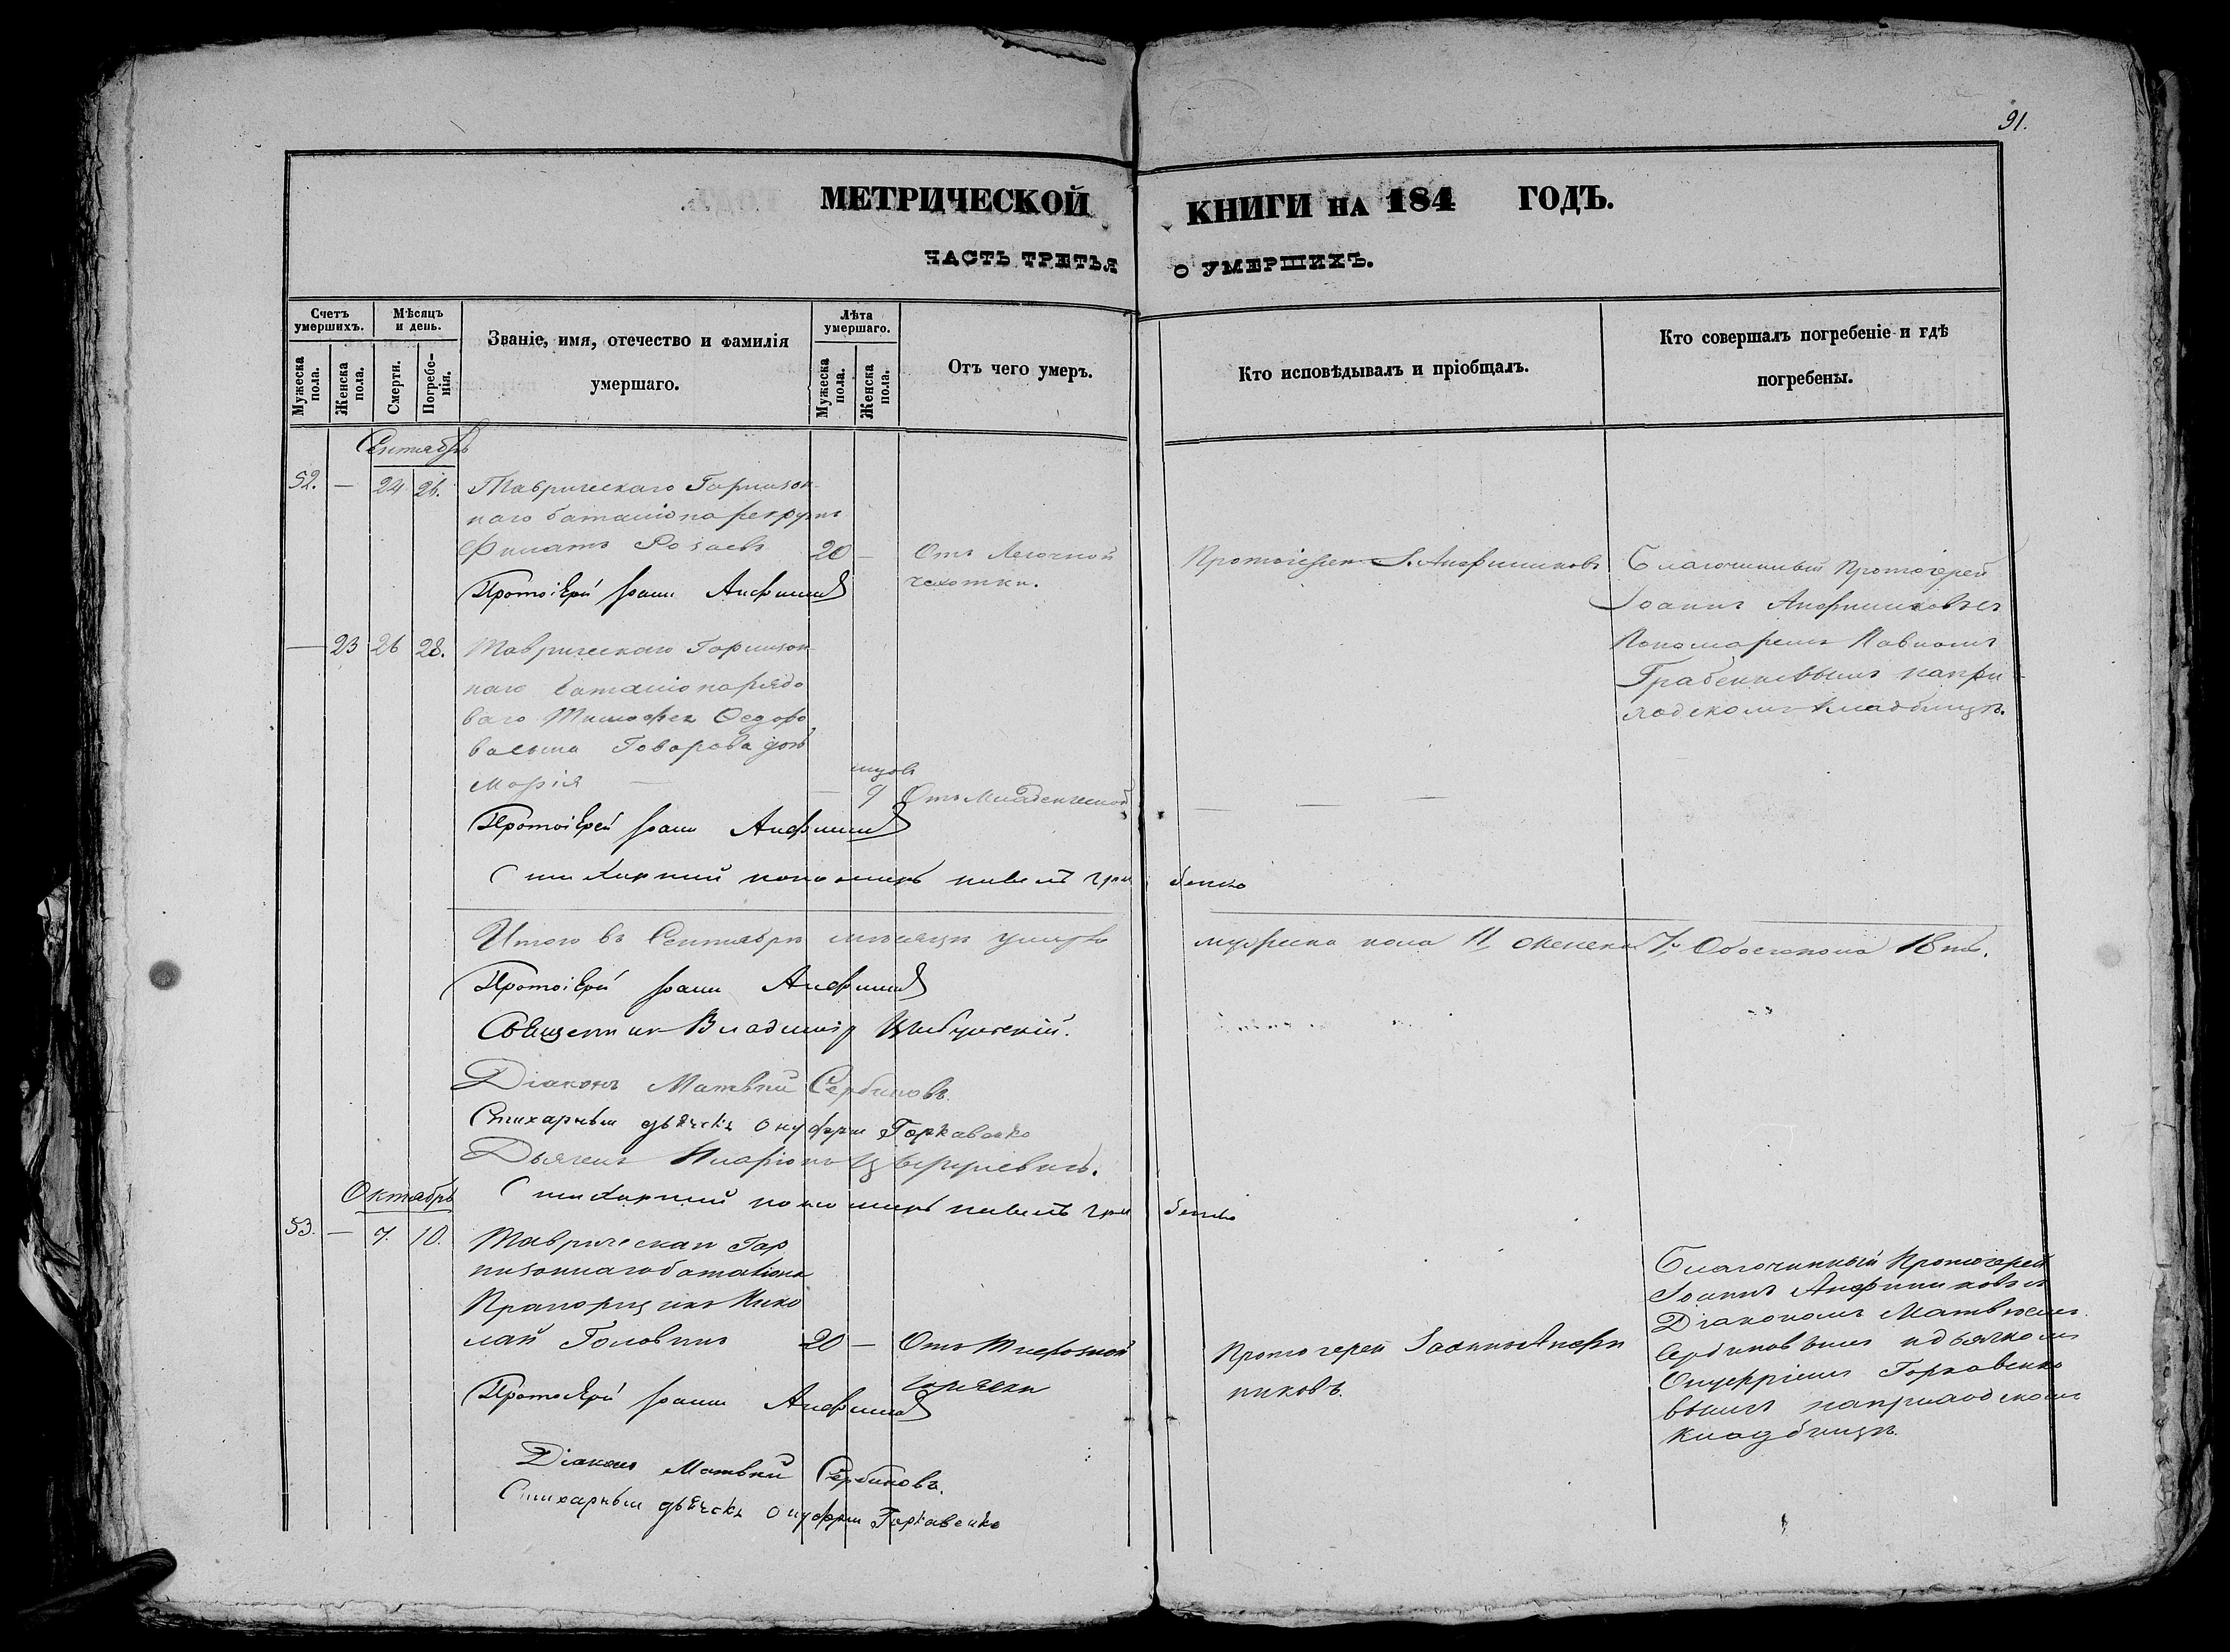 91.
МЕТРИЧЕСКОЙ КНИГИ НА 184 ГОДЪ.
ЧАСТЬ ТРЕТЬЯ О УМЕРШИХЪ.
Счетъ умершихъ.
Мѣсяцъ и день.
Званіе, имя, отечество и фамилія умершаго.
Лѣта умершаго.
Отъ чего умеръ.
Кто исповѣдывалъ и пріобщалъ.
Кто совершалъ погребеніе и гдѣ погребены.
Мужеска пола.
Женска пола.
Смерти.
Погребенія.
Мужеска пола.
Женска пола.
Сентябрь
52. — 24 26. Таврическаго Гарнизон-
наго баталіона рекрутъ
Филатъ 20 —
Отъ Легочной
чахотки.
Протоіерей І. Анфиниковъ
Благочинный Протоіерей
Іоаннъ Анфиниковъ съ
Пономаремъ Павломъ
на при-
ходскомъ кладбищѣ.
Протоіерей Іоаннъ
— 23 26 28. Таврическаго Гарнизон-
наго баталіона рядо
ваго Тимофея Ѳедоро
ва сына Говорова дочь
Марія — — 9 Отъ Младенческой
— — —
Протоіерей Іоаннъ
Стихарный пономарь Павелъ Грабенко
Итого въ Сентябрѣ мѣсяцѣ умерло мужеска пола 11, женска 7, Обоего пола 18ть.
Протоіерей Іоаннъ
Священникъ Владиміръ
Діаконъ Матвѣй Сербиновъ.
Стихарный дьячекъ Онуфрій Горкавенко
Дьячекъ Иларіонъ
Стихарный пономарь Павелъ Грабенко
Октябрь
53. — 7. 10. Таврическаго Гар
низоннаго баталіона
Прапорщикъ Нико
лай Головинъ 20 —
Отъ Тифозной
горячки
Протоіерей Іоаннъ Анфи
никовъ.
Благочинный Протоіерей
Іоаннъ Анфиниковъ съ
Діакономъ Матвѣемъ
Сербиновымъ и дьячкомъ
Онуфріемъ Горкавенко
вымъ на приходскомъ
кладбищѣ.
Протоіерей Іоаннъ
Діаконъ Матвѣй Сербиновъ.
Стихарный дьячекъ Онуфрій Горкавенко